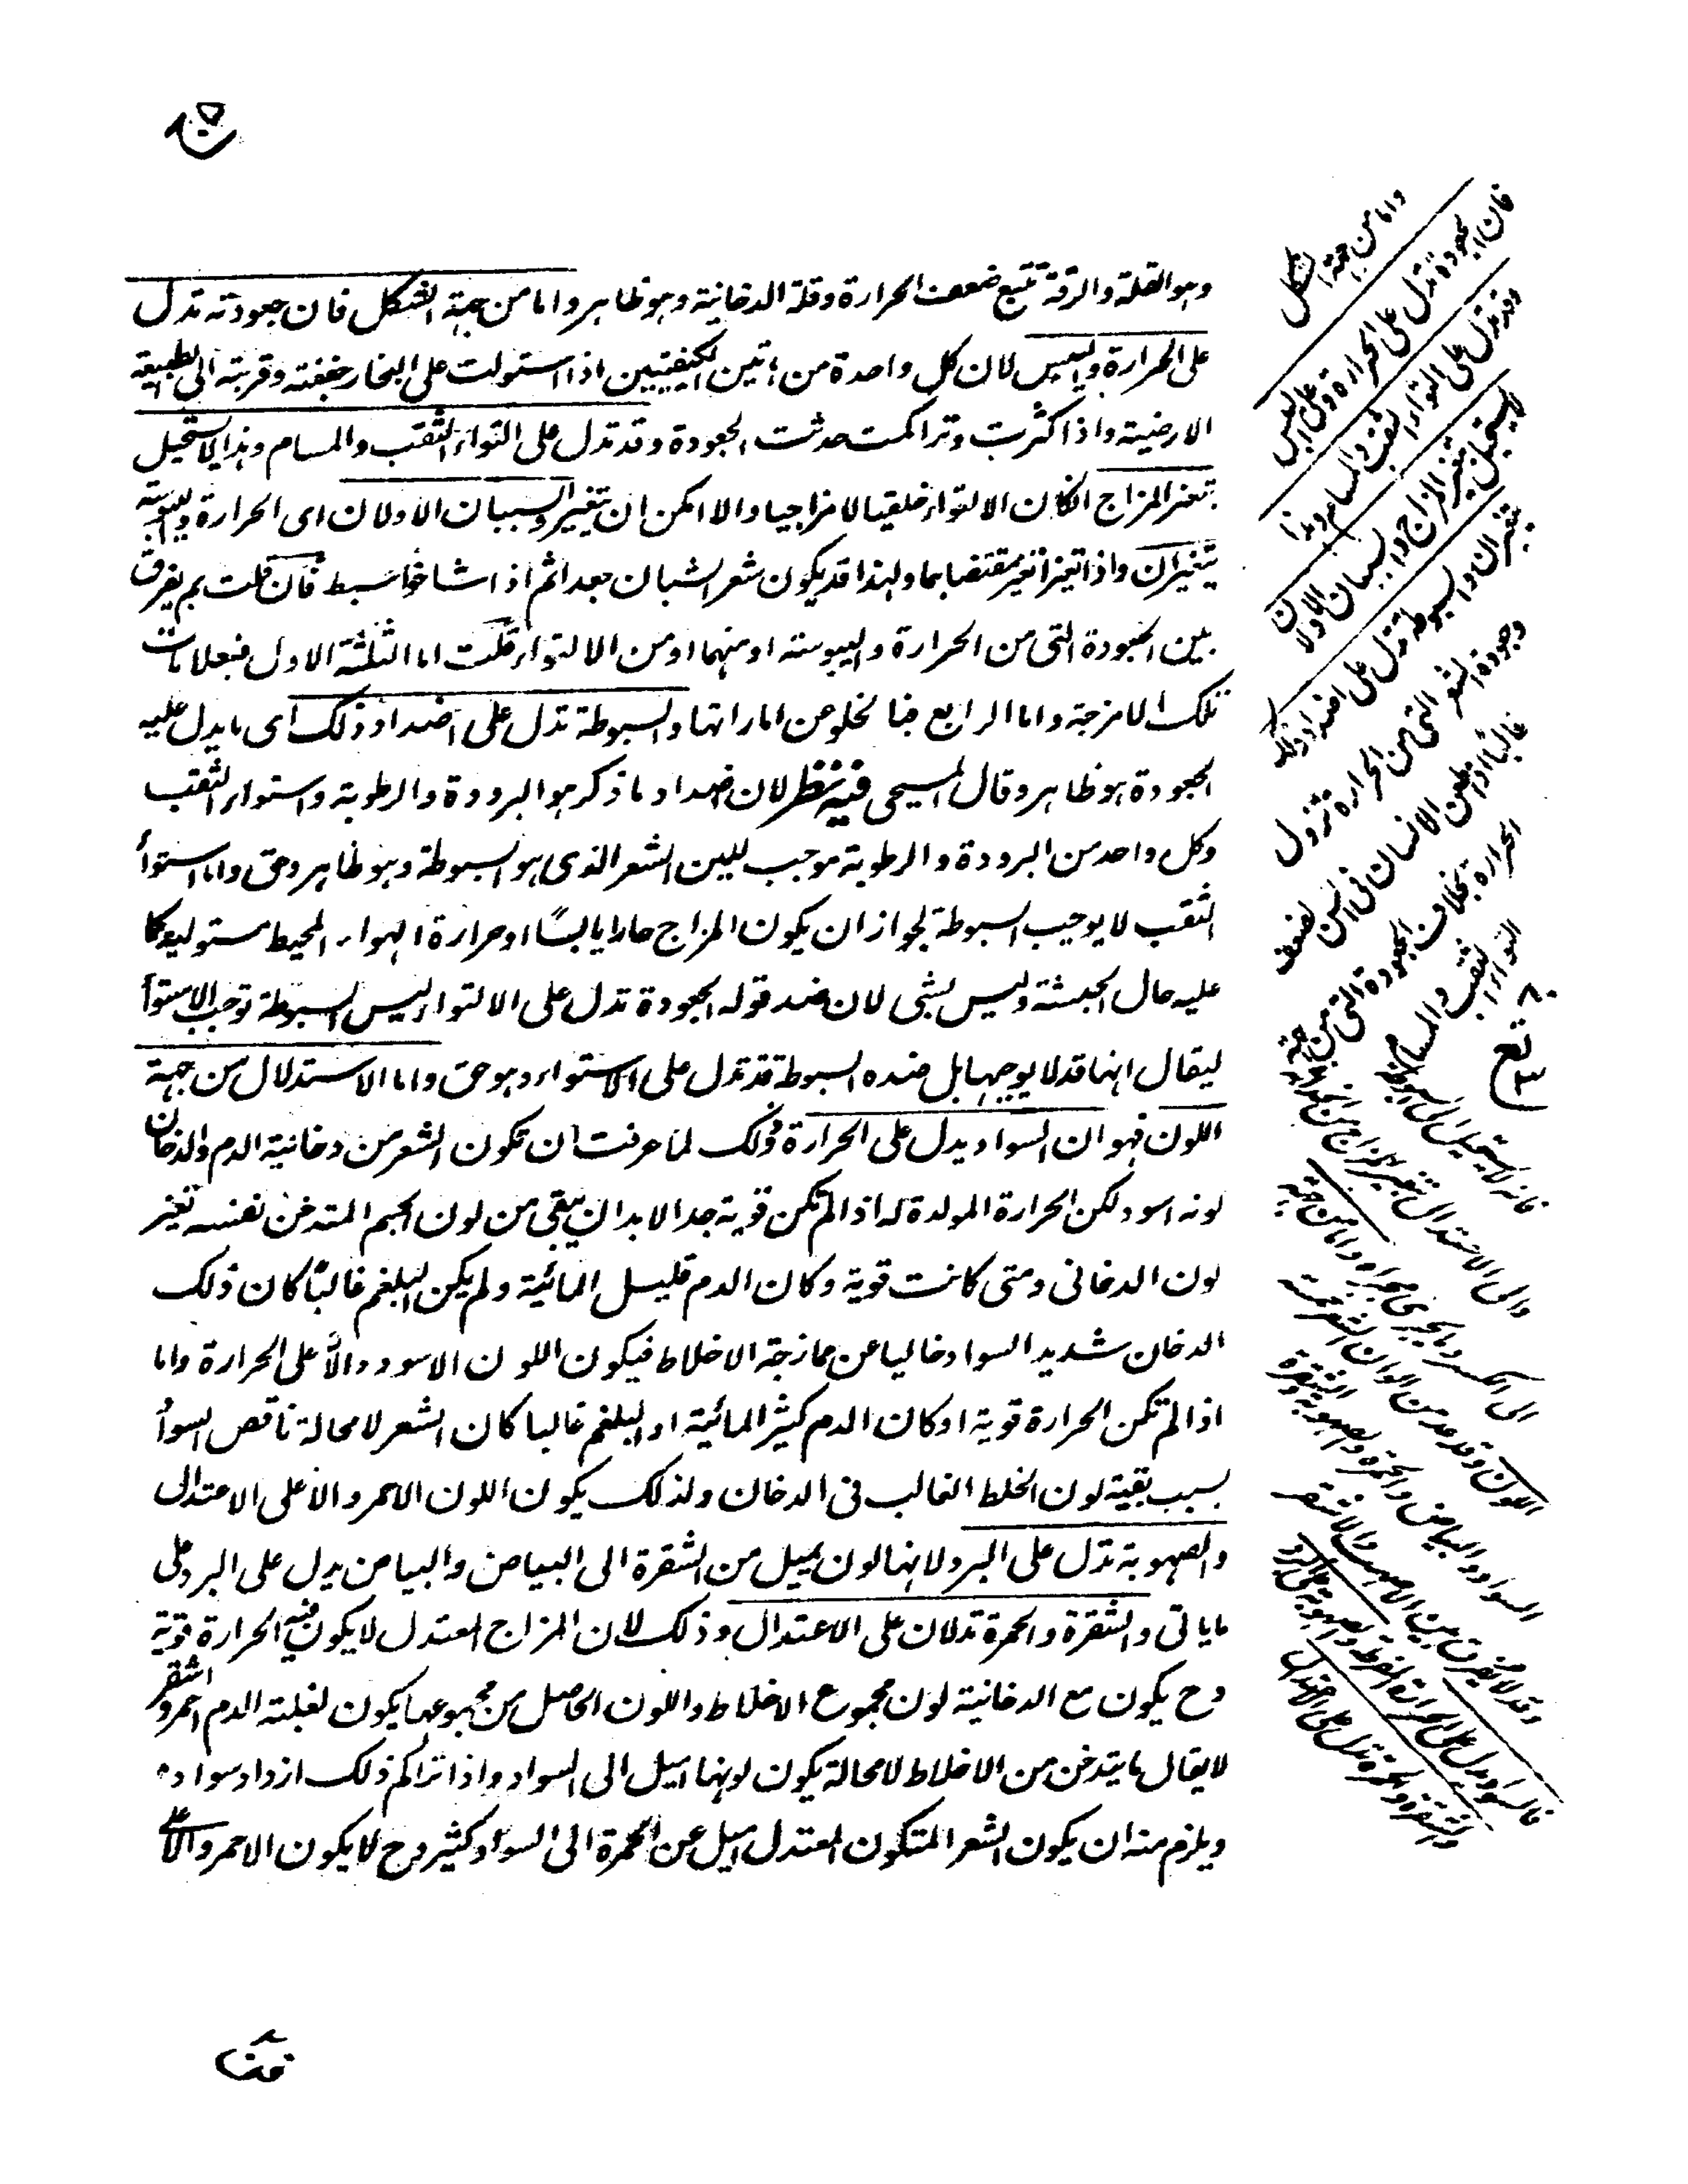 وهو القلة والرقة تتبع ضعف الحرارة وقلة الدخانية وهو ظاهر واما من جهة الشكل فان جعودته تدل
على الحرارة واليبس لان كل واحدة من هاتين الكيفيتين اذا استولت على البخار خففته وقربته الى الطبيعة
الارضية واذا كثرت وتراكمت حدثت الجعودة وقد تدل على التواء الثقب والمسام وهذا لا يستحيل
بتغير المزاج اذ كان الالتواء خلقيا لا مزاجيا والا امكن ان يتغير والسببان الاولان اى الحرارة واليبوسة
يتغيران واذا تغيرا تغير مقتضاهما ولهذا قد يكون شعر الشبان جعدا ثم اذا شاخوا سبط فان قلت بم يفرق
بين الجعودة التى من الحرارة واليبوسة او منهما او من الالتواء قلت اما الثلثة الاول فبعلامات
تلك الامزجة واما الرابع فبالخلو عن اماراتها والسبوطة تدل على اضداد ذلك اى ما يدل عليه
الجعودة هو ظاهر وقال المسيحى فيه نظر لان اضداد ما ذكر هو البرودة والرطوبة واستواء الثقب
وكل واحد من البرودة والرطوبة موجب للين الشعر الذى هو السبوطة وهو ظاهر وحق واما استوأ
الثقب لا يوجب السبوطة لجواز ان يكون المزاج حارا يابسًا او حرارة الهواء المحيط مستولية كما
عليه حال الحبشة وليس بشى لان ضد قوله الجعودة تدل على الالتواء ليس السبوطة توجب الاستوأ
ليقال انها قد لا يوجبها بل ضده السبوطة قد تدل على الاستواء وهو حق واما الاستدلال من جهة
اللون فهو ان السواد يدل على الحرارة وذلك لما عرفت ان تكون الشعر من دخانية الدم والدخان
لونه اسود لكن الحرارة المولدة له اذا لم تكن قوية جدا لا بد ان يبقى من لون الجسم المتدخن نفسه تغير
لون الدخانى ومتى كانت قوية وكان الدم قليل المائية ولم يكن البلغم غالبًا كان ذلك
الدخان شديد السواد خاليا عن ممازجة الاخلاط فيكون اللون الاسود دالًّا على الحرارة واما
اذا لم تكن الحرارة قوية او كان الدم كثير المائية او البلغم غالبا كان الشعر لا محالة ناقص السوأ
بسبب بقية لون الخلط الغالب فى الدخان ولذلك يكون اللون الاحمر دالا على الاعتدال
والصهوبة تدل على البرد لانها لون يميل من الشقرة الى البياض والبياض يدل على البرد على
ما ياتى والشقرة والحمرة تدلان على الاعتدال وذلك لان المزاج المعتدل لا يكون فيه الحرارة قوية
وح يكون مع الدخانية لون مجموع الاخلاط واللون الحاصل من مجموعها يكون لغلبة الدم احمر واشقر
لا يقال ما يتدخن من الاخلاط لا محالة يكون لونها اميل الى السواد واذا تراكم ذلك ازداد سواده
ويلزم منه ان يكون الشعر المتكون المعتدل اميل عن الحمرة الى السواد كثير وح لا يكون الاحمر دالا على
واما من جهة الشكل
فان الجعودة تدل على الحرارة وعلى اليبس
وقد تدل على التواء الثقب والمسام وهذا
لا يستحيل بتغير المزاج والسببان الاولان
يتغيران والسبوطة تدل على اضداد ذلك
وجعودة الشعر التى من الحرارة تزول
الحرارة بخلاف الجعودة التى من جهة
التواء الثقب والمسام
فانه لا يستحيل الى السبوطة
السواد والبياض والحمرة والصهوبة والشقرة
فالسواد يدل على الحرارة المفرطة والصهوبة على البرد
والشقرة والحمرة تدل على الاعتدال